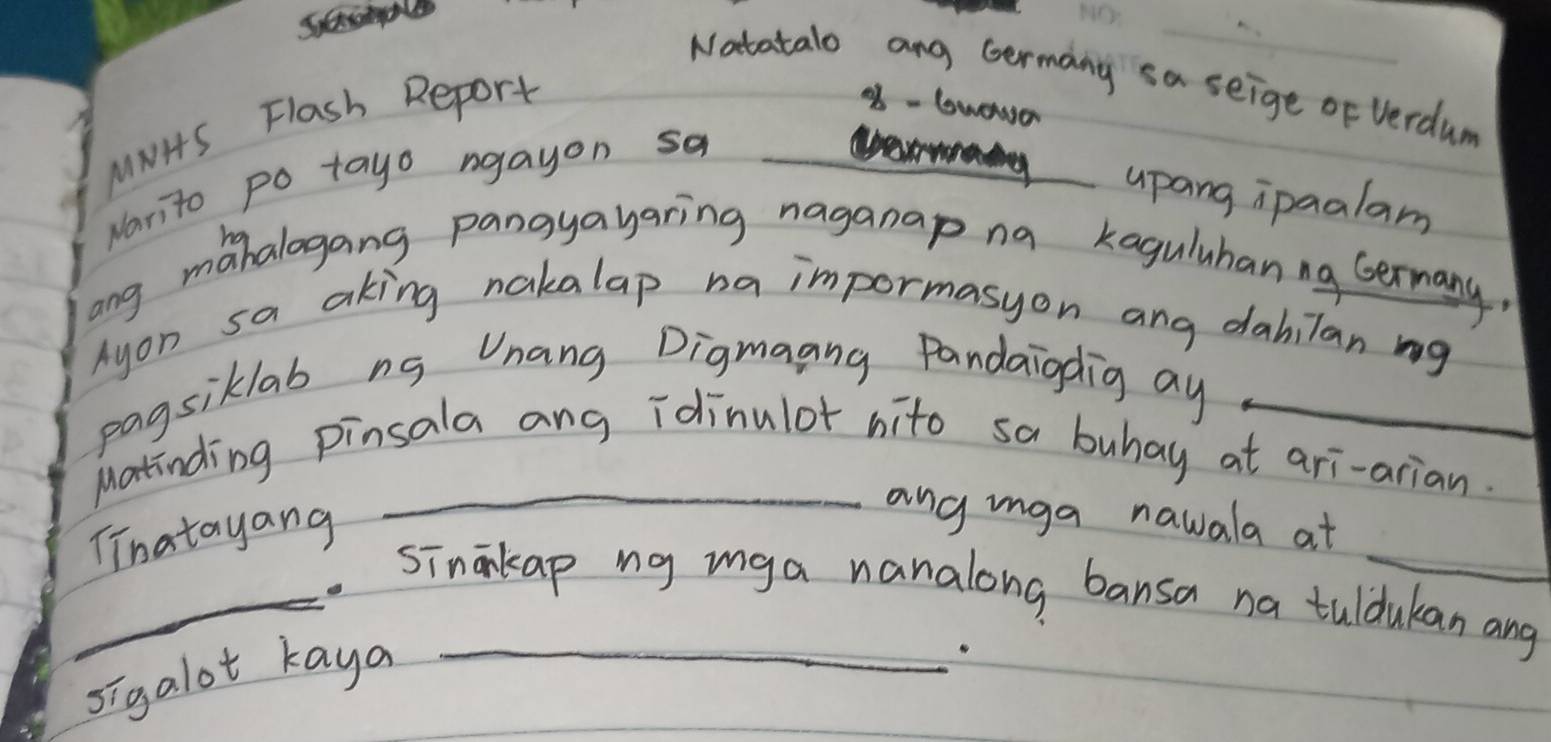 NO:
Natatalo ang Germany sa seige of Verdum
MNHS Flash Report
8 - Guava
Narito po tayo ngayon sa ________ upang ipaalam
ang mahalagang pangyayaring naganap na kaguluhan ng Germany.
Ayon sa aking nakalap na impormasyon ang dahilan ng
pagsiklab ng Unang Digmaang Pandaigdig ay ________
Matinding pinsala ang idinulot nito sa buhay at ari-arian.
Tinatayang ________ ang mga nawala at ________
________. Sinikap ng mga nanalong bansa na tuldukan ang
sigalot kaya ________.